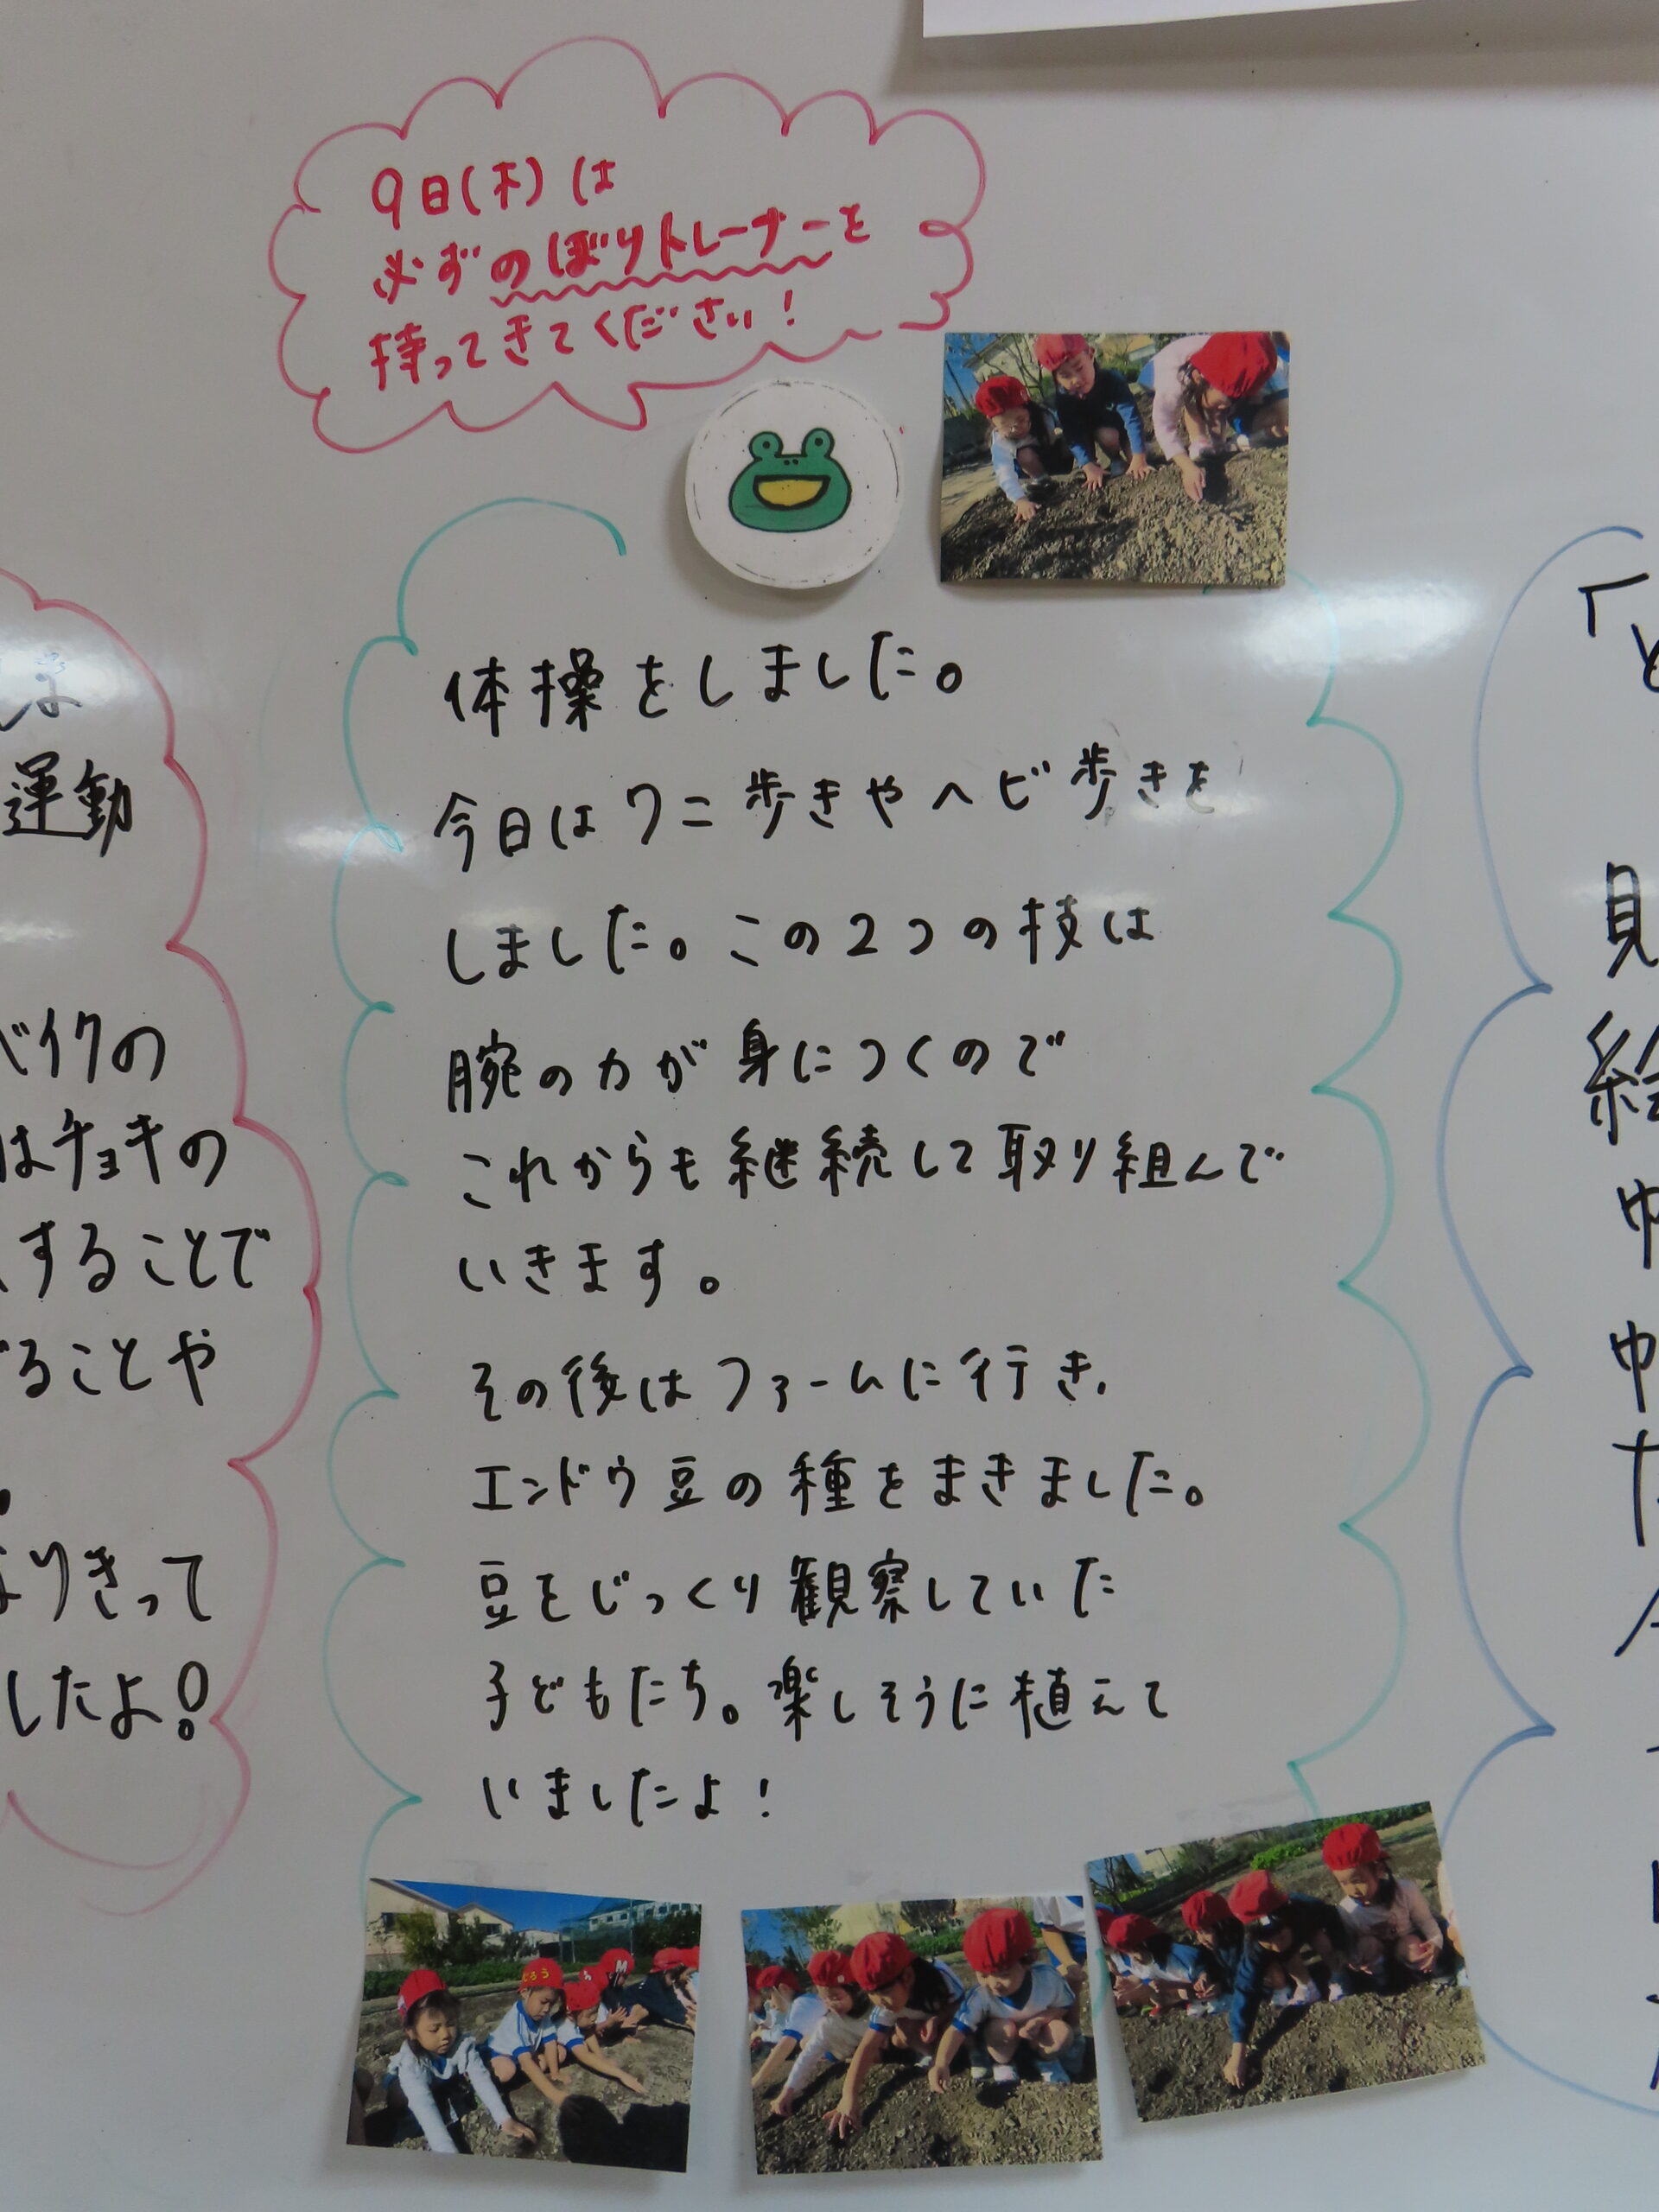 9日(木)は
必ずのぼりトレーナーを
持ってきてください!
体操をしました。
今日はワニ歩きやヘビ歩きを
しました。この2つの技は
腕の力が身につくので
これからも継続して取り組んで
いきます。
その後はファームに行き、
エンドウ豆の種をまきました。
豆をじっくり観察していた
子どもたち。楽しそうに植えて
いましたよ!
運動
バイクの
はチョキの
することで
ることや
なりきって
したよ!
「と
見
絵